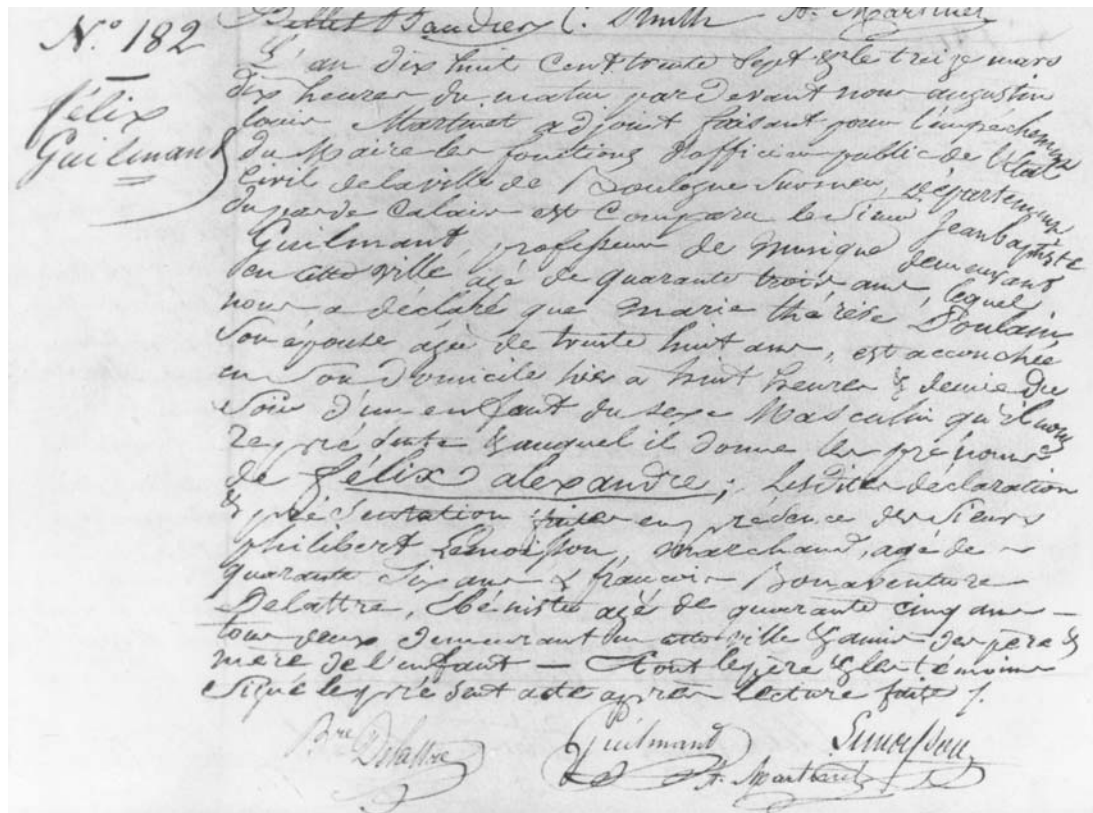 Bellet Baudier C. Smith A. Martinet
N.º 182
félix
Guilmant
L'an dix huit cent trente sept & le treize mars
dix heures du matin par devant nous augustin
louis Martinet adjoint faisant pour l'empêchement
du Maire les fonctions d'officier public de l'état
Civil de la ville de Boulogne Sur mer, Département
du pas de Calais est Comparu le Sieur Jean baptiste
Guilmant, professeur de Musique demeurant
en cette ville, agé de quarante trois ans, lequel
nous a déclaré que Marie thérèse Poulain
Son épouse agée de trente huit ans, est accouchée
en Son domicile hier a huit heures & demie du
Soir d'un enfant du sexe Masculin qu'il nous
représente & auquel il donne les prénoms
de félix alexandre; Lesdites déclaration
& présentation faites en présence des Sieurs
philibert Lemoisson, marchand, agé de
quarante Six ans & françois Bonaventure
Delattre, Ebéniste agé de quarante cinq ans
tous deux demeurant en cette ville & amis des père &
mère de l'enfant — & ont le père & les témoins
Signé le présent acte après Lecture faite /.
Bre Delattre Guilmant Lemoisson
A. Martinet